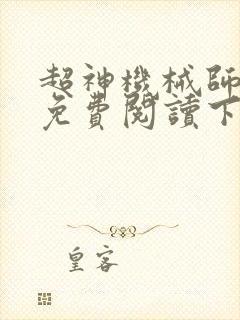 超神機械師
免費閱讀下
皇客